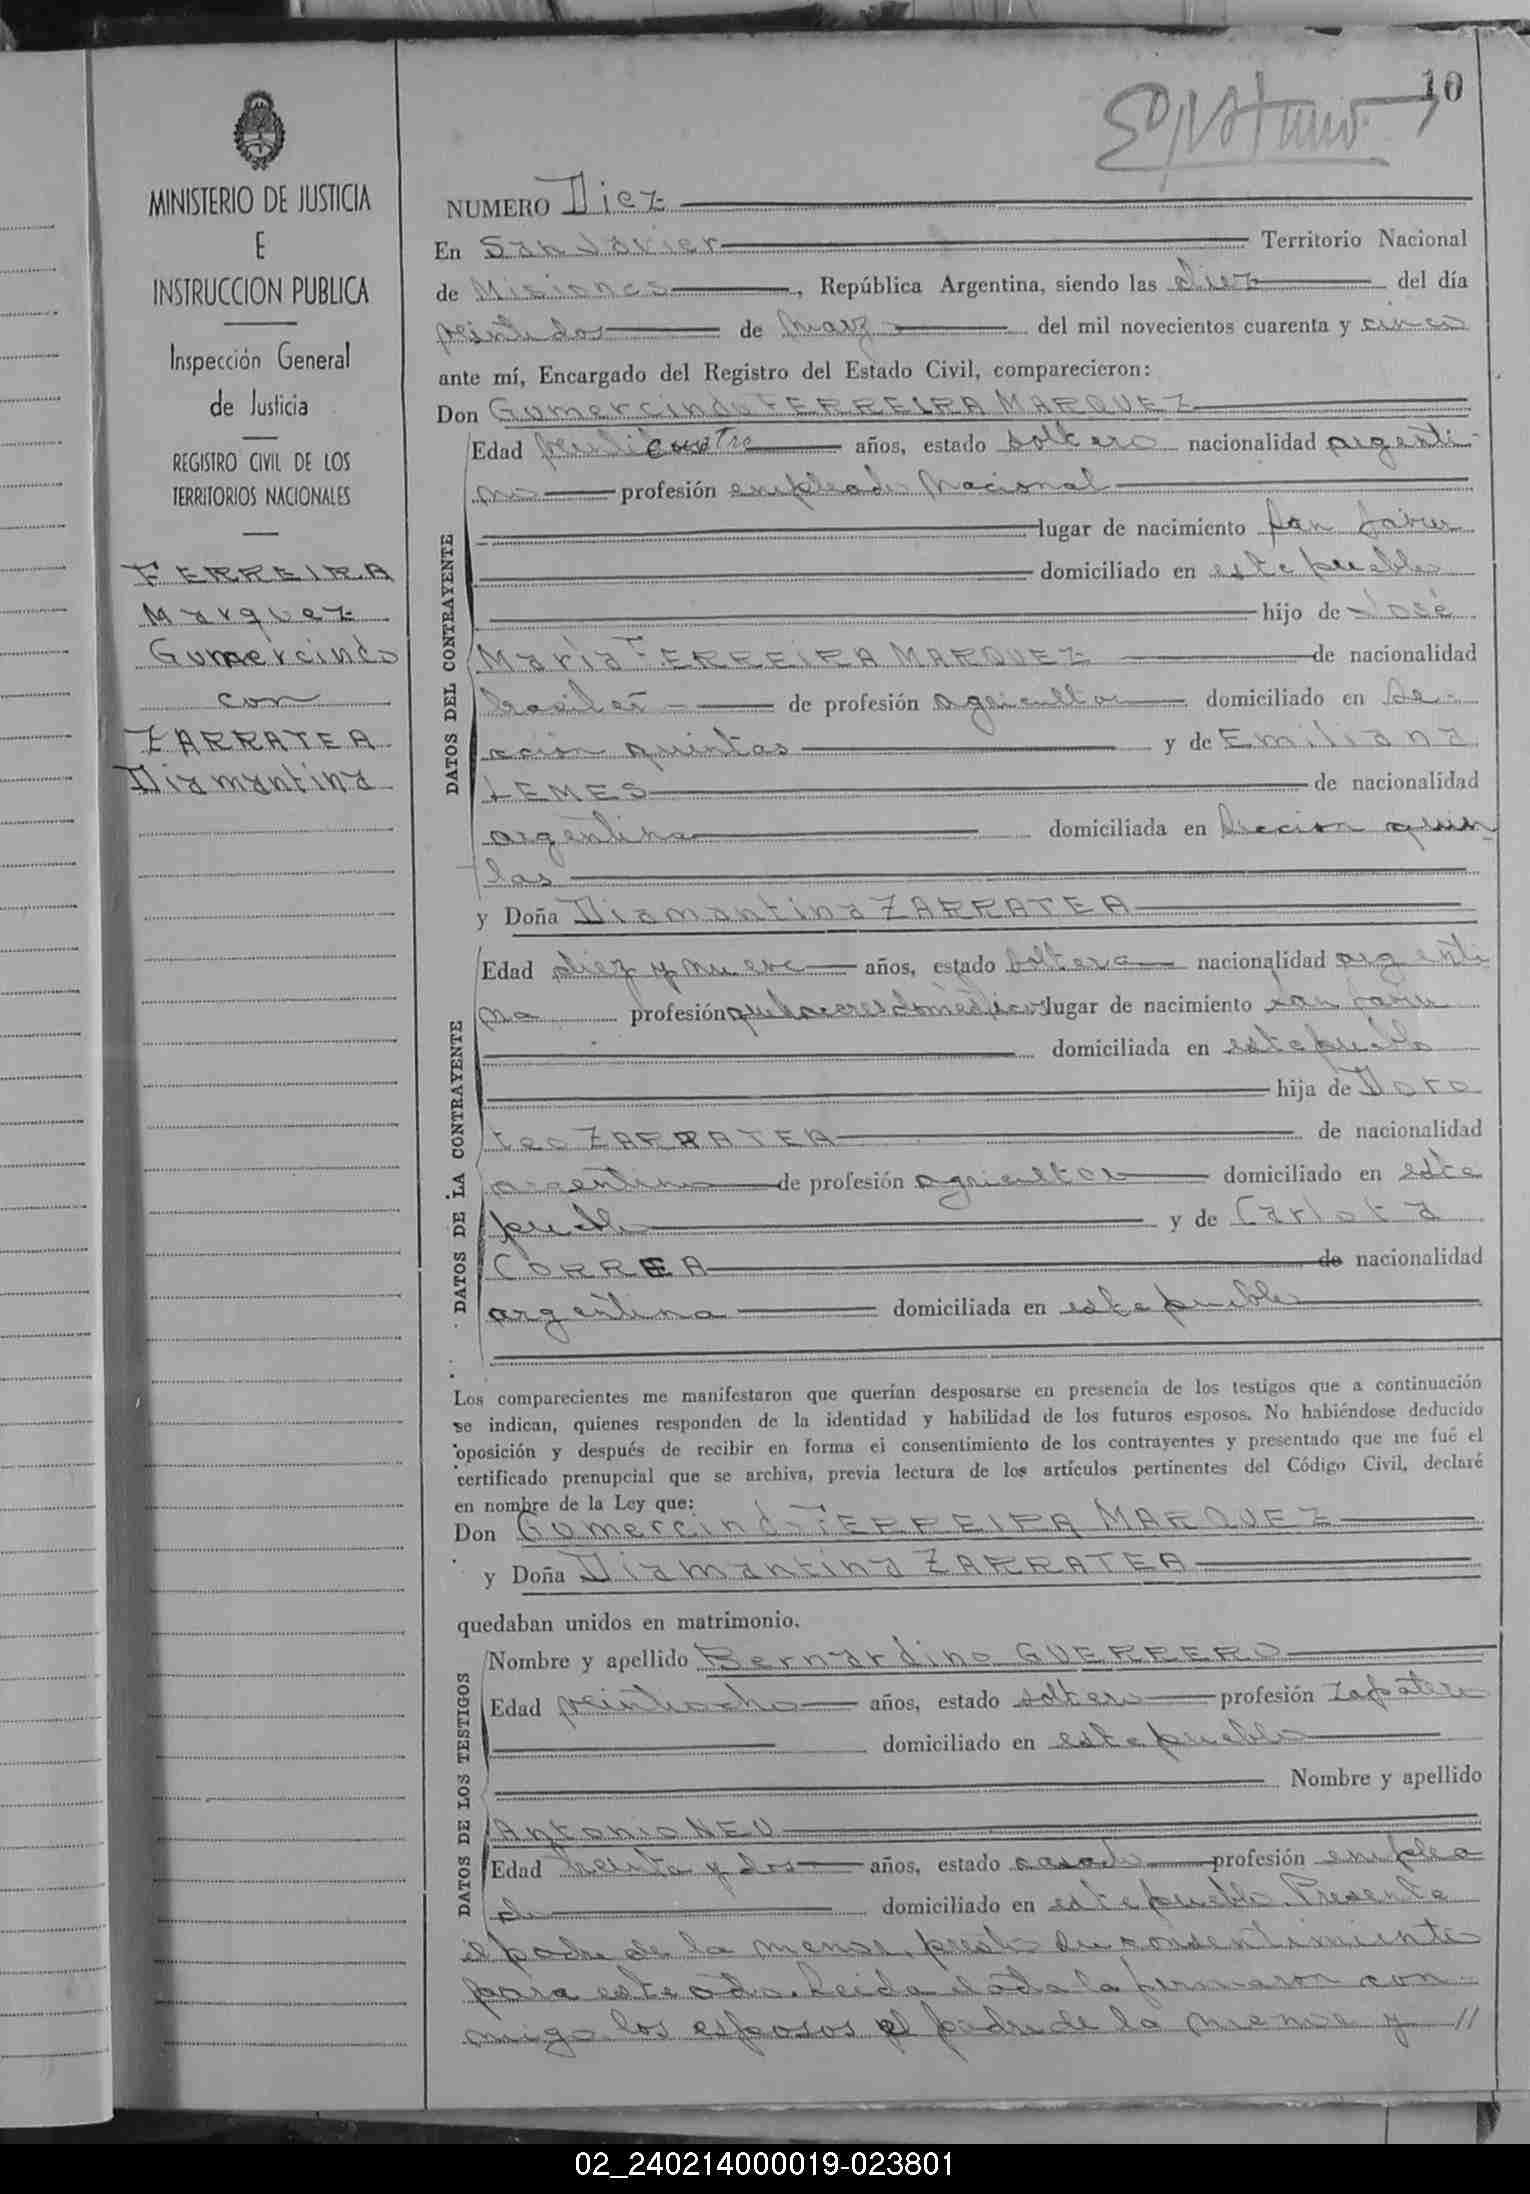 10
MINISTERIO DE JUSTICIA
E
INSTRUCCION PUBLICA
Inspección General
de Justicia
REGISTRO CIVIL DE LOS
TERRITORIOS NACIONALES
FERREIRA
Marquez
Gumercindo
con
ZARRATEA
Diamantina
NUMERO Diez
En San Javier Territorio Nacional
de Misiones, República Argentina, siendo las diez del día
veintidos de marzo del mil novecientos cuarenta y cinco
ante mí, Encargado del Registro del Estado Civil, comparecieron:
Don Gumercindo FERREIRA MARQUEZ
DATOS DEL CONTRAYENTE
Edad veinticuatro años, estado soltero nacionalidad argenti-
no profesión empleado Nacional
lugar de nacimiento San Javier
domiciliado en este pueblo
hijo de José
Maria FERREIRA MARQUEZ de nacionalidad
de profesión agricultor domiciliado en Se-
cción quintas y de Emiliana
LEMES de nacionalidad
argentina domiciliada en Seccion quin
tas
y Doña Diamantina ZARRATEA
DATOS DE LA CONTRAYENTE
Edad diez y nueve años, estado soltera nacionalidad argenti
na profesión quehaceres domésticos lugar de nacimiento San Javier
domiciliada en este pueblo
hija de Doro
teo ZARRATEA de nacionalidad
argentino de profesión agricultor domiciliado en este
pueblo y de Carlota
CORREA de nacionalidad
argentina domiciliada en este pueblo
Los comparecientes me manifestaron que querían desposarse en presencia de los testigos que a continuación
se indican, quienes responden de la identidad y habilidad de los futuros esposos. No habiéndose deducido
oposición y después de recibir en forma el consentimiento de los contrayentes y presentado que me fué el
certificado prenupcial que se archiva, previa lectura de los artículos pertinentes del Código Civil, declaré
en nombre de la Ley que:
Don Gumercindo FERREIRA MARQUEZ
y Doña Diamantina ZARRATEA
quedaban unidos en matrimonio.
DATOS DE LOS TESTIGOS
Nombre y apellido Bernardino GUERRERO
Edad veintiocho años, estado soltero profesión zapatero
domiciliado en este pueblo
Nombre y apellido
Antonio NEU
Edad treinta y dos años, estado casado profesión emplea
do domiciliado en este pueblo. Presente
el padre de la menor, presta su consentimiento
para este acto. Leida el acta la firmaron con-
migo los esposos el padre de la menor y //
02_240214000019-023801